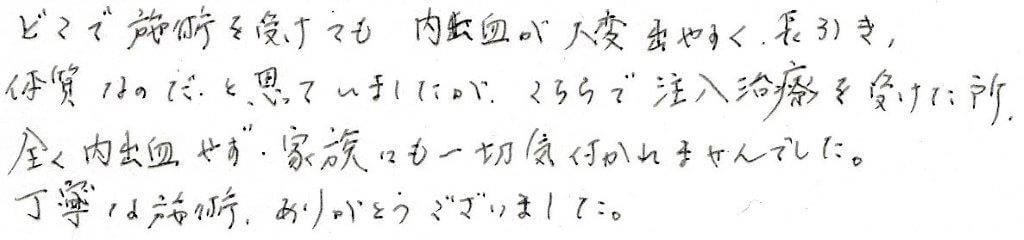 どこで施術を受けても 内出血が大変出やすく、長引き、
体質なのだ、と思っていましたが、こちらで注入治療を受けた所、
全く内出血せず、家族にも一切気付かれませんでした。
丁寧な施術、ありがとうございました。